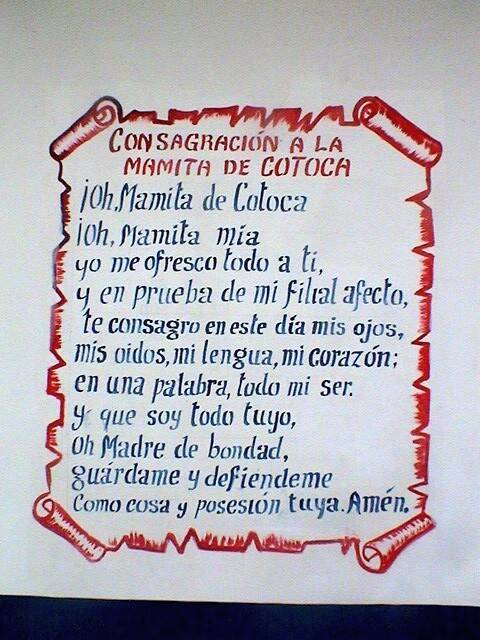 CONSAGRACIÓN A LA
MAMITA DE COTOCA
¡Oh, Mamita de Cotoca
¡Oh, Mamita mía
yo me ofresco todo a ti,
y en prueba de mi filial afecto,
te consagro en este día mis ojos,
mis oidos, mi lengua, mi corazón;
en una palabra, todo mi ser.
y que soy todo tuyo,
Oh Madre de bondad,
guárdame y defiendeme
Como cosa y posesión tuya. Amén.